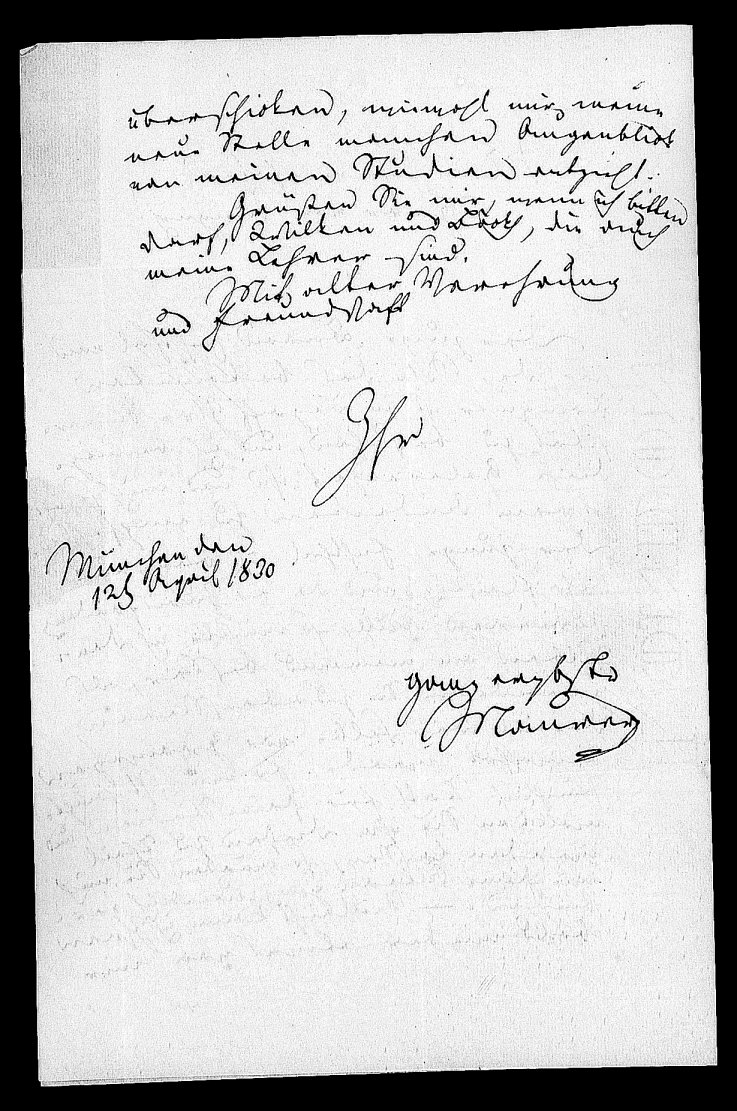 überschicken, wiewohl mir meine
neue Stelle manchen Augenblick
von meinen Studien entzieht.
Grüßen Sie mir, wenn ich bitten
darf, Wilken und Böckh, die auch
meine Lehrer sind.
Mit alter Verehrung
und Freundschaft
Ihr
München den
12 April 1830
ganz ergebste
Maurer